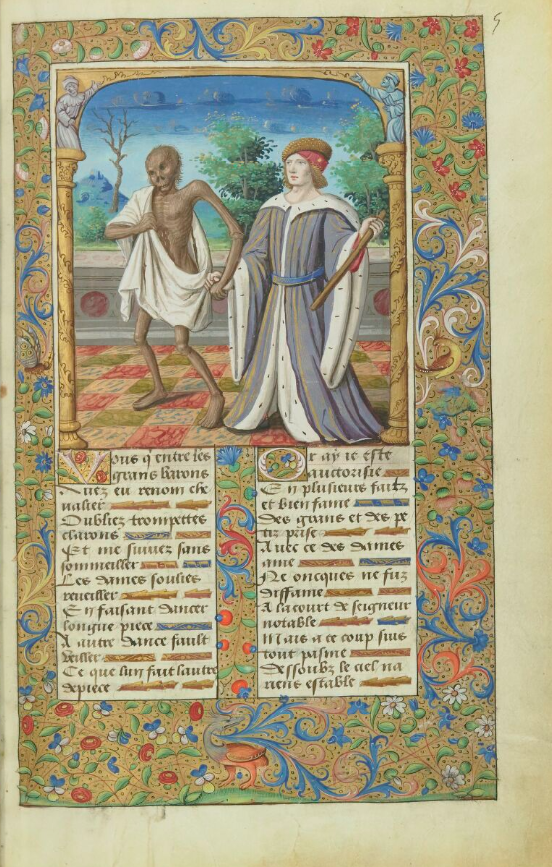 5
Vous q̄ entre les
grans barons
Auez eu renom che
ualier
Oubliez trompettes
clarons
Et me suiuez sans
sommeiller
Les dames soulies
reueiller
En faisant dancer
longue piece
A autre dance fault
veiller
Ce que lun fait lautre
depiece
Or ay ie este
auctorisie
En plusieurs faitz
et bien fame
Des grans et des pe
tiz prise
Auec ce des dames
ame
Ne oncques ne fuz
diffame
A la court de seigneur
notable
Mais a ce coup suis
tout pasme
Dessoubz le ciel na
riens estable